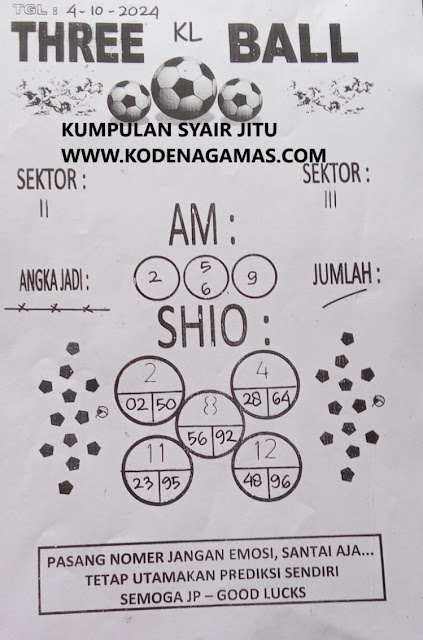 TGL : 4-10-2024
THREE KL BALL
KUMPULAN SYAIR JITU
WWW.KODENAGAMAS.COM
SEKTOR : SEKTOR :
II III
AM :
ANGKA JADI : 2 5 6 9 JUMLAH :
x x x
SHIO :
2 4
02 50 28 64
8
56 92
11 12
23 95 48 96
PASANG NOMER JANGAN EMOSI, SANTAI AJA...
TETAP UTAMAKAN PREDIKSI SENDIRI
SEMOGA JP – GOOD LUCKS